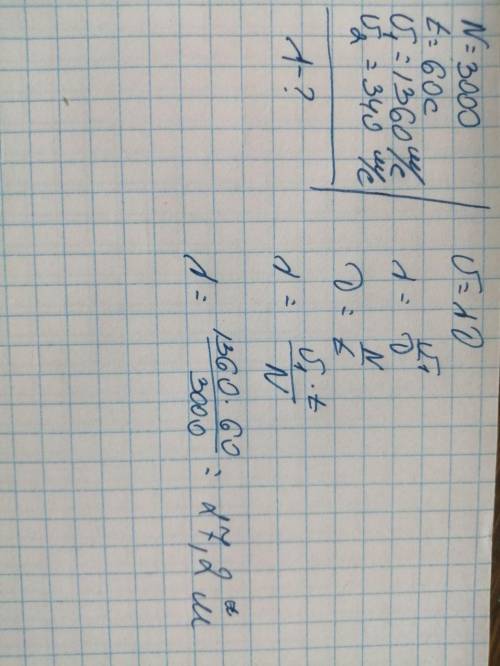 N = 3000
t = 60 с
υ₁ = 1360 м/с
υ₂ = 340 м/с
λ - ?
υ = λν
λ = υ₁/ν
ν = N/t
λ = υ₁·t/N
λ = 1360·60/3000 = 27,2 м